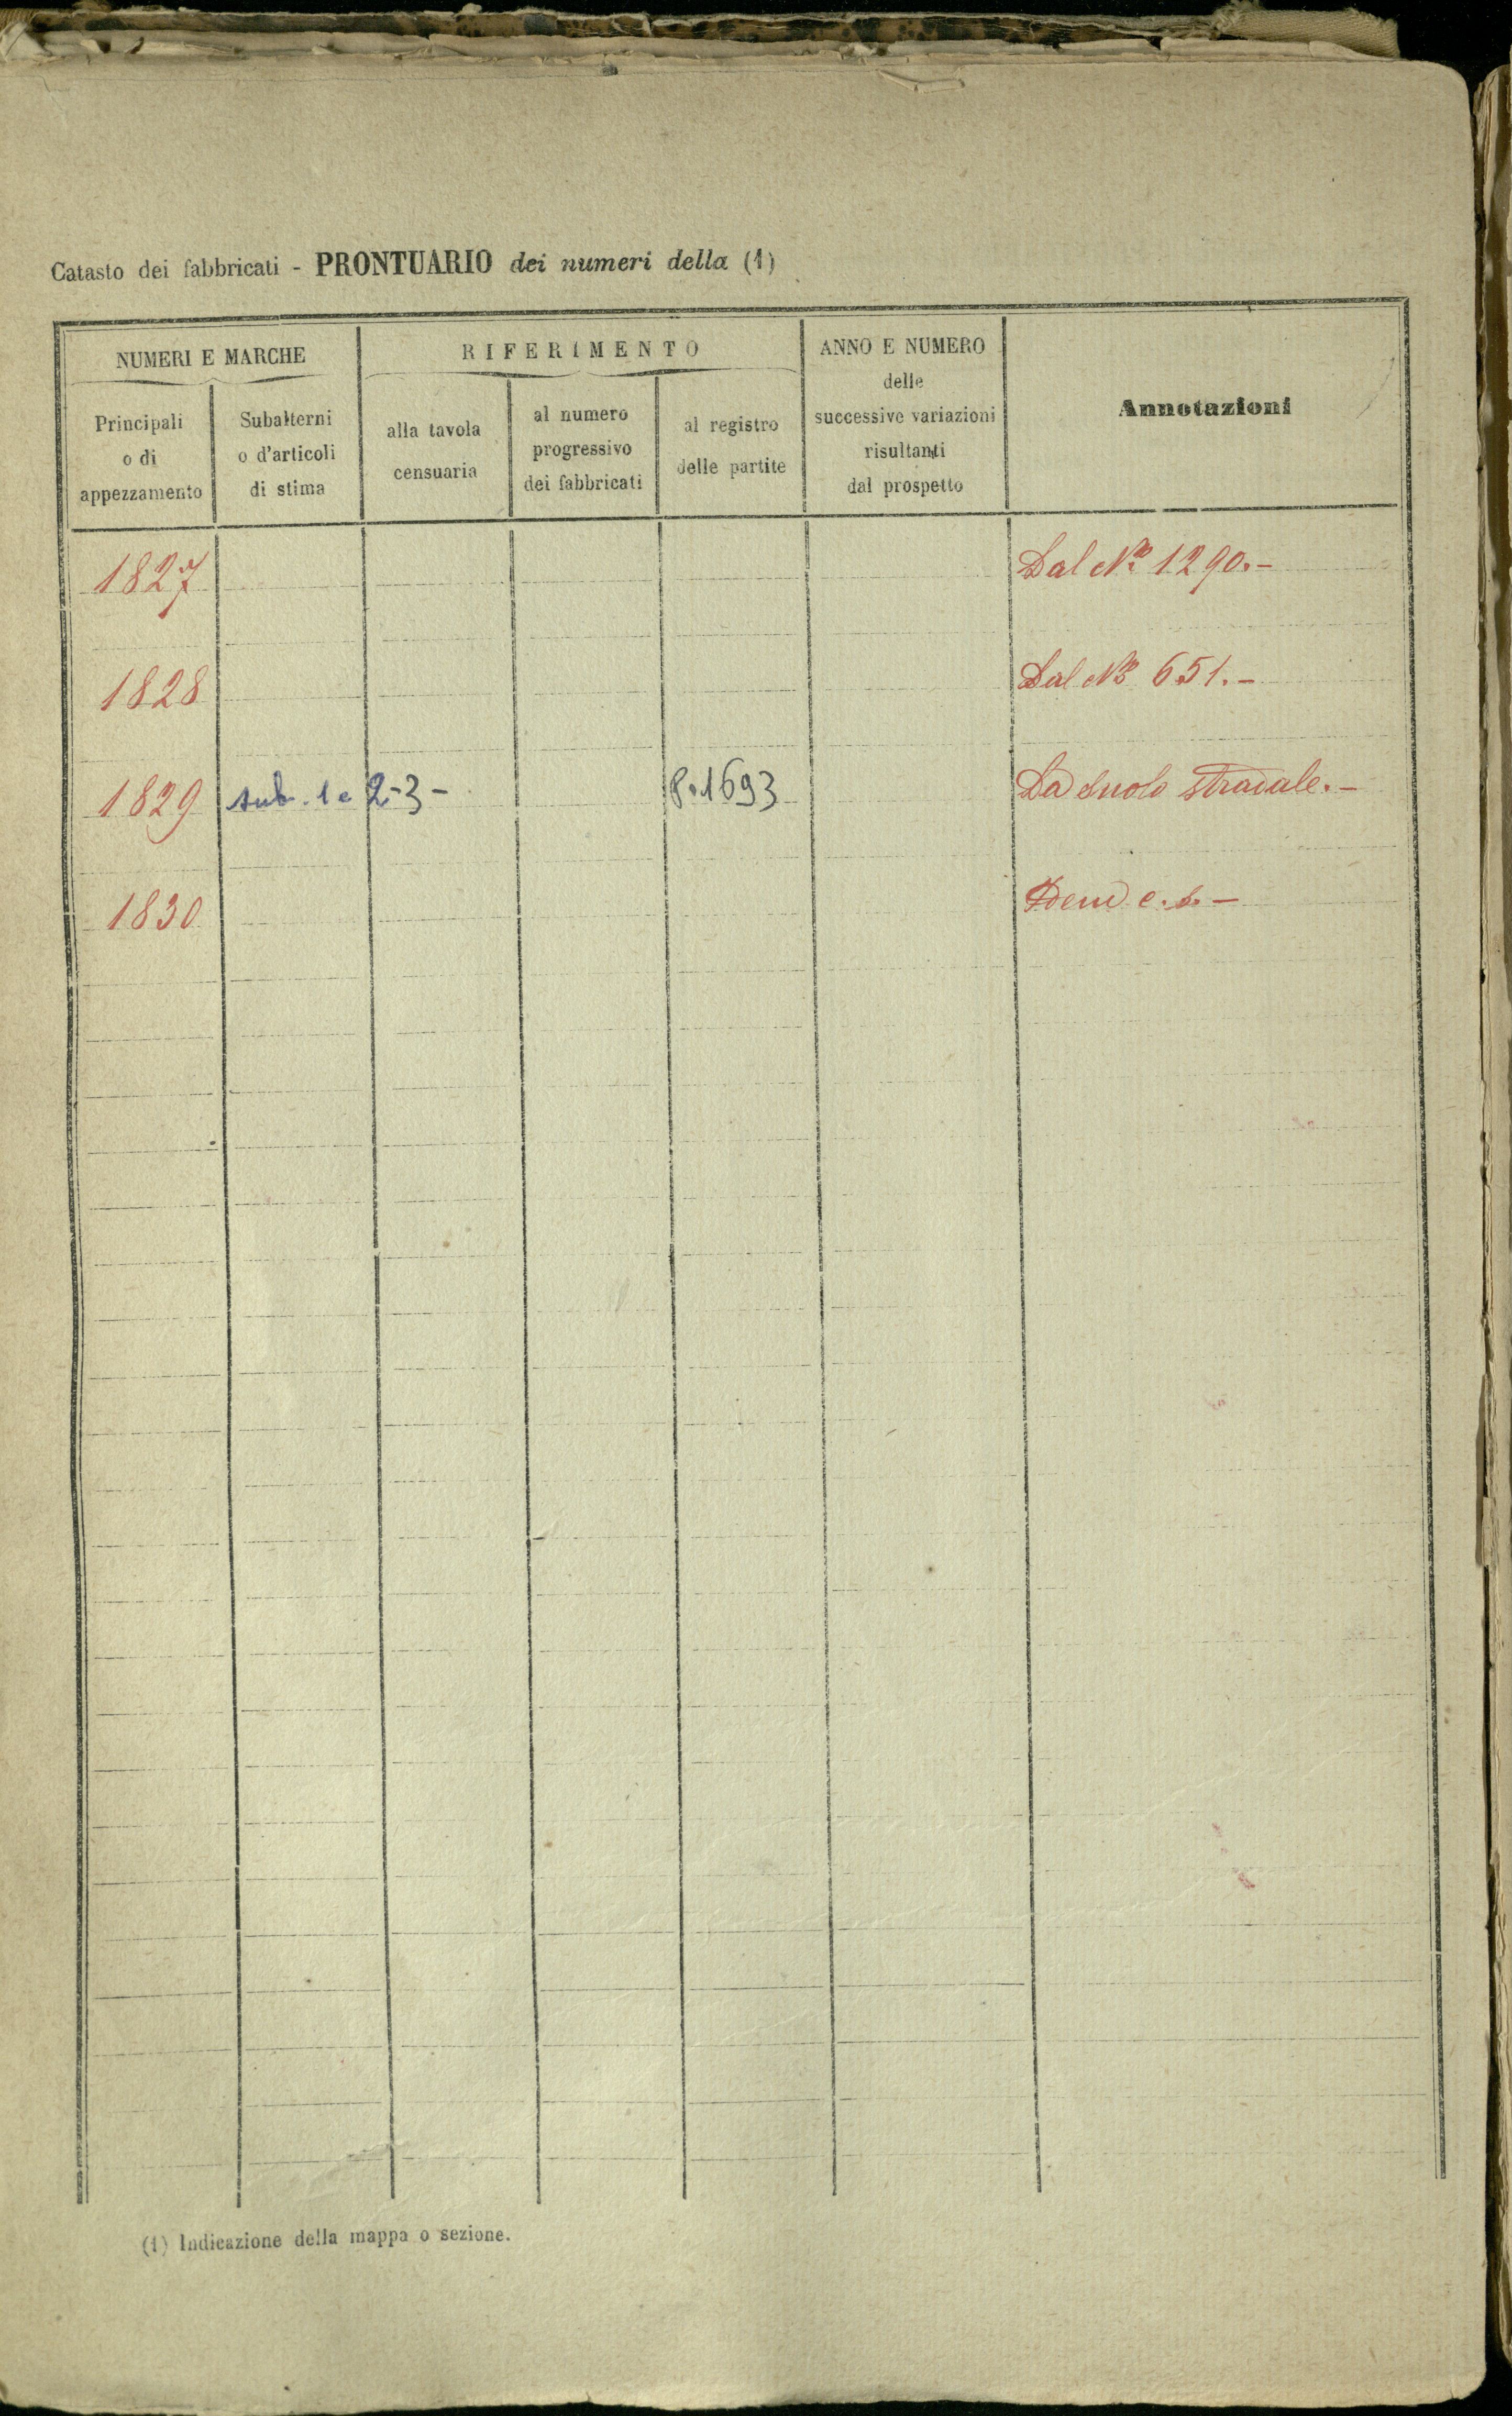 Catasto dei fabbricati - PRONTUARIO dei numeri della (1)
NUMERI E MARCHE
RIFERIMENTO
ANNO E NUMERO
delle
successive variazioni
risultanti
dal prospetto
Annotazioni
Principali
o di
appezzamento
Subalterni
o d'articoli
di stima
alla tavola
censuaria
al numero
progressivo
dei fabbricati
al registro
delle partite
1827 Dal No 1290.-
1828 Dal No 651.-
1829 sub. 1 e 2-3- P.1693 Da suolo stradale.-
1830 Idem c.s.-
(1) Indicazione della mappa o sezione.